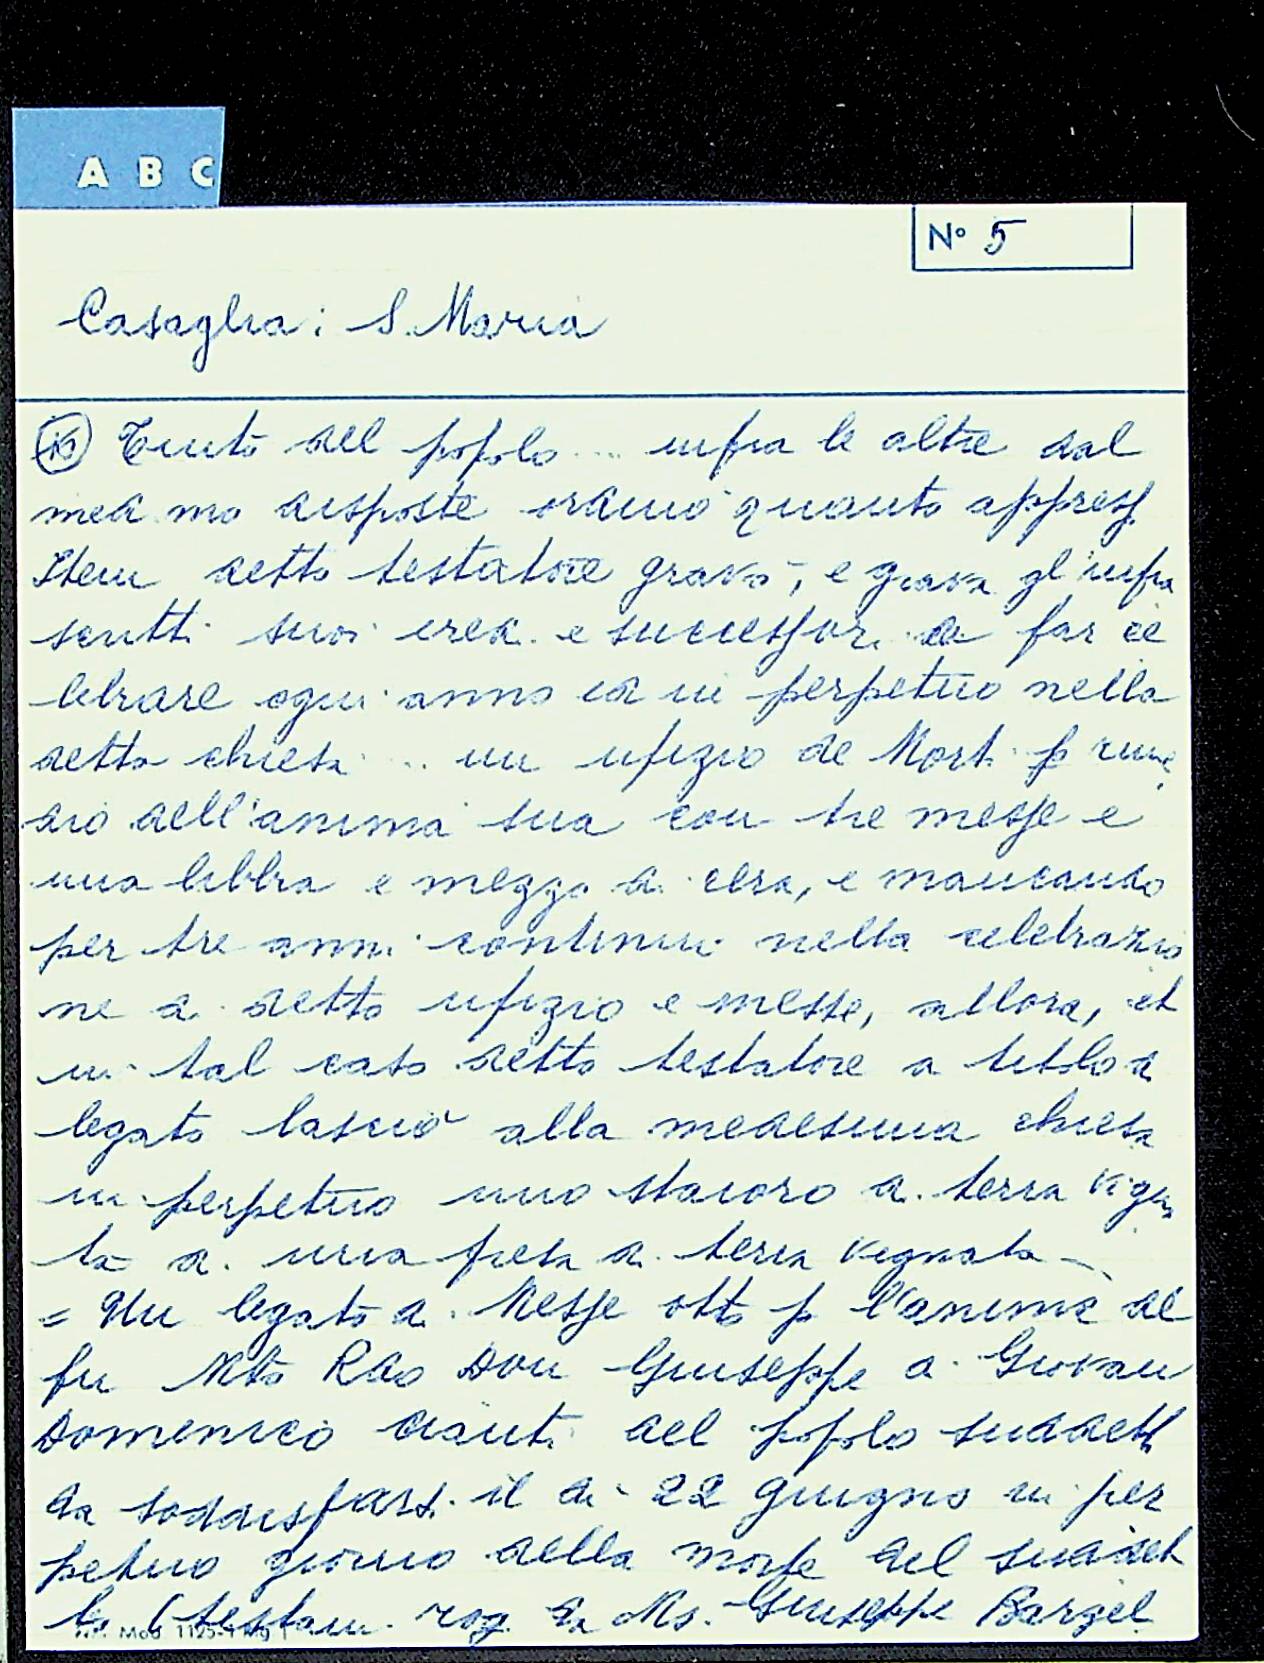 A B C
N° 5
Casaglia: S. Maria
del popolo ... infra le altre dal
med.mo disposte ordinò quanto appress.
Item detto testatore gravò, e grava gl'infra
scritti suoi ered. e successor. di far ce
lebrare ogni anno ed in perpetuo nella
detta chiesa ... un ufizio de Mort. p rime
dio dell'anima sua con tre messe e
una libbra e mezzo di cera, e mancando
per tre anni continui nella celebrazio
ne di detto ufizio e messe, allora, et
in tal caso detto testatore a titolo di
legato lasciò alla medesima chiesa
in perpetuo uno staioro di terra vigna
ta di una presa di terra vignata
= Un legato di Messe otto p l'anima del
fu Mto Rdo Don Giuseppe di Giovan
Domenico del popolo suddett
da soddisfarsi il dì 22 giugno in per
petuo giorno della morte del suddet
to (testam. rog. da Ms. Giuseppe Bargel
Mod. 1125-1